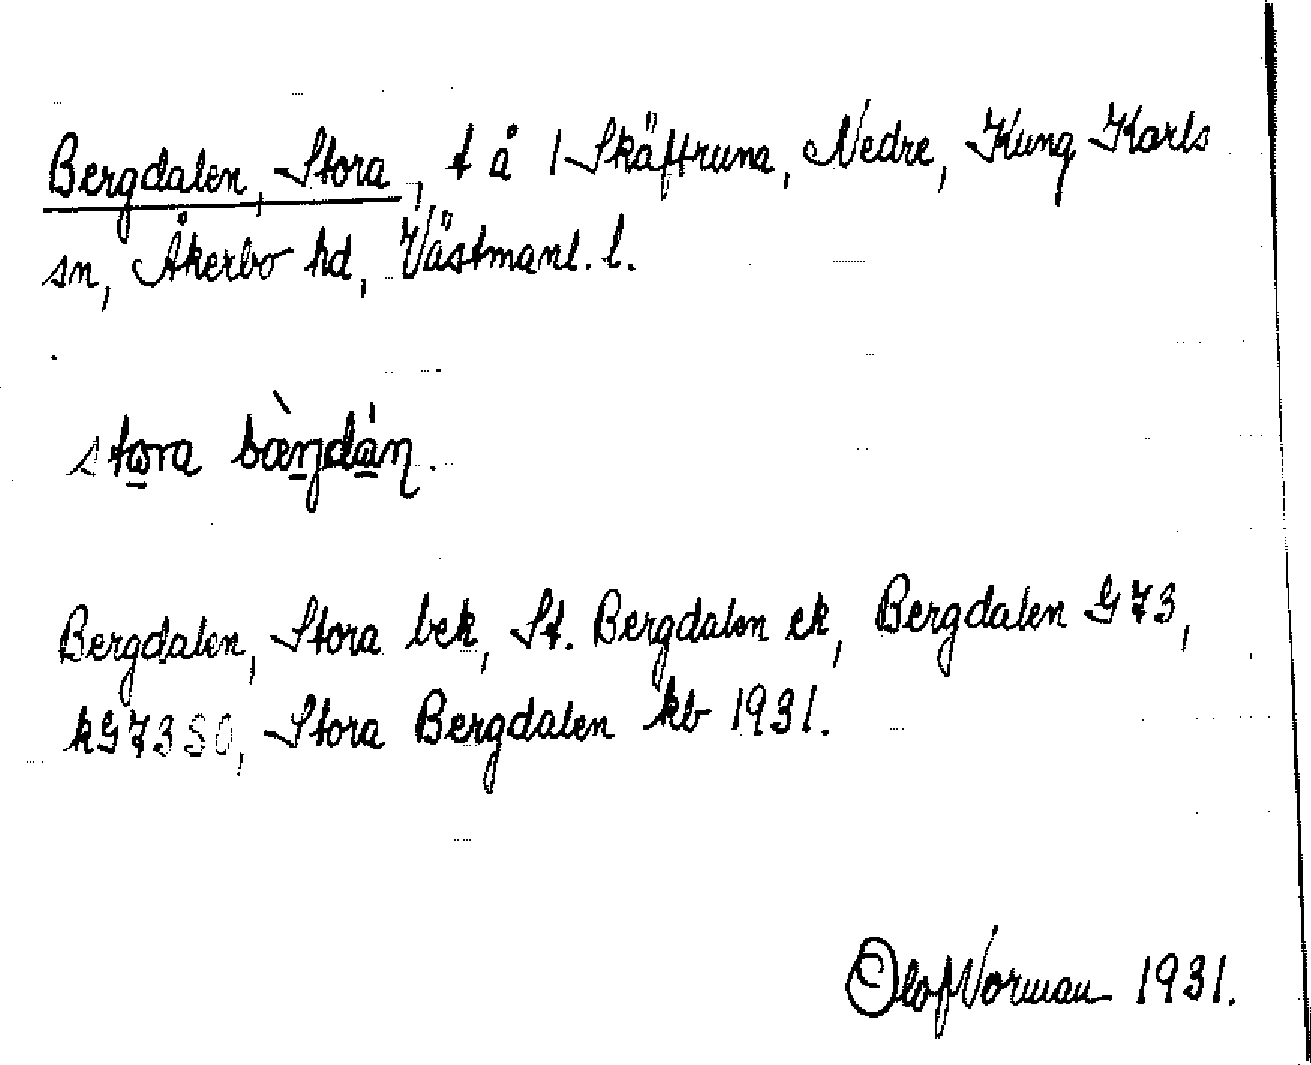 Bergdalen, Stora, t å 1 Skäftruna, Nedre, Kung Karls
sn, Åkerbo hd, Västmanl. l.
stora
Bergdalen, Stora bek, St. Bergdalen ek, Bergdalen G 73,
kG73SO, Stora Bergdalen kb 1931.
Olof Norman 1931.